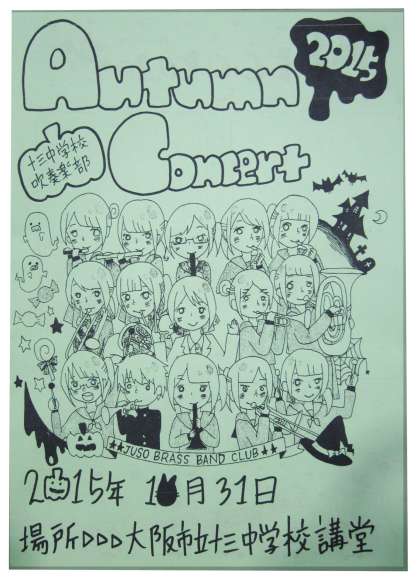 Autumn
2015
Concert
十三中学校
吹奏楽部
★★JUSO BRASS BAND CLUB★★
2015年 10月31日
場所▷▷▷大阪市立十三中学校講堂